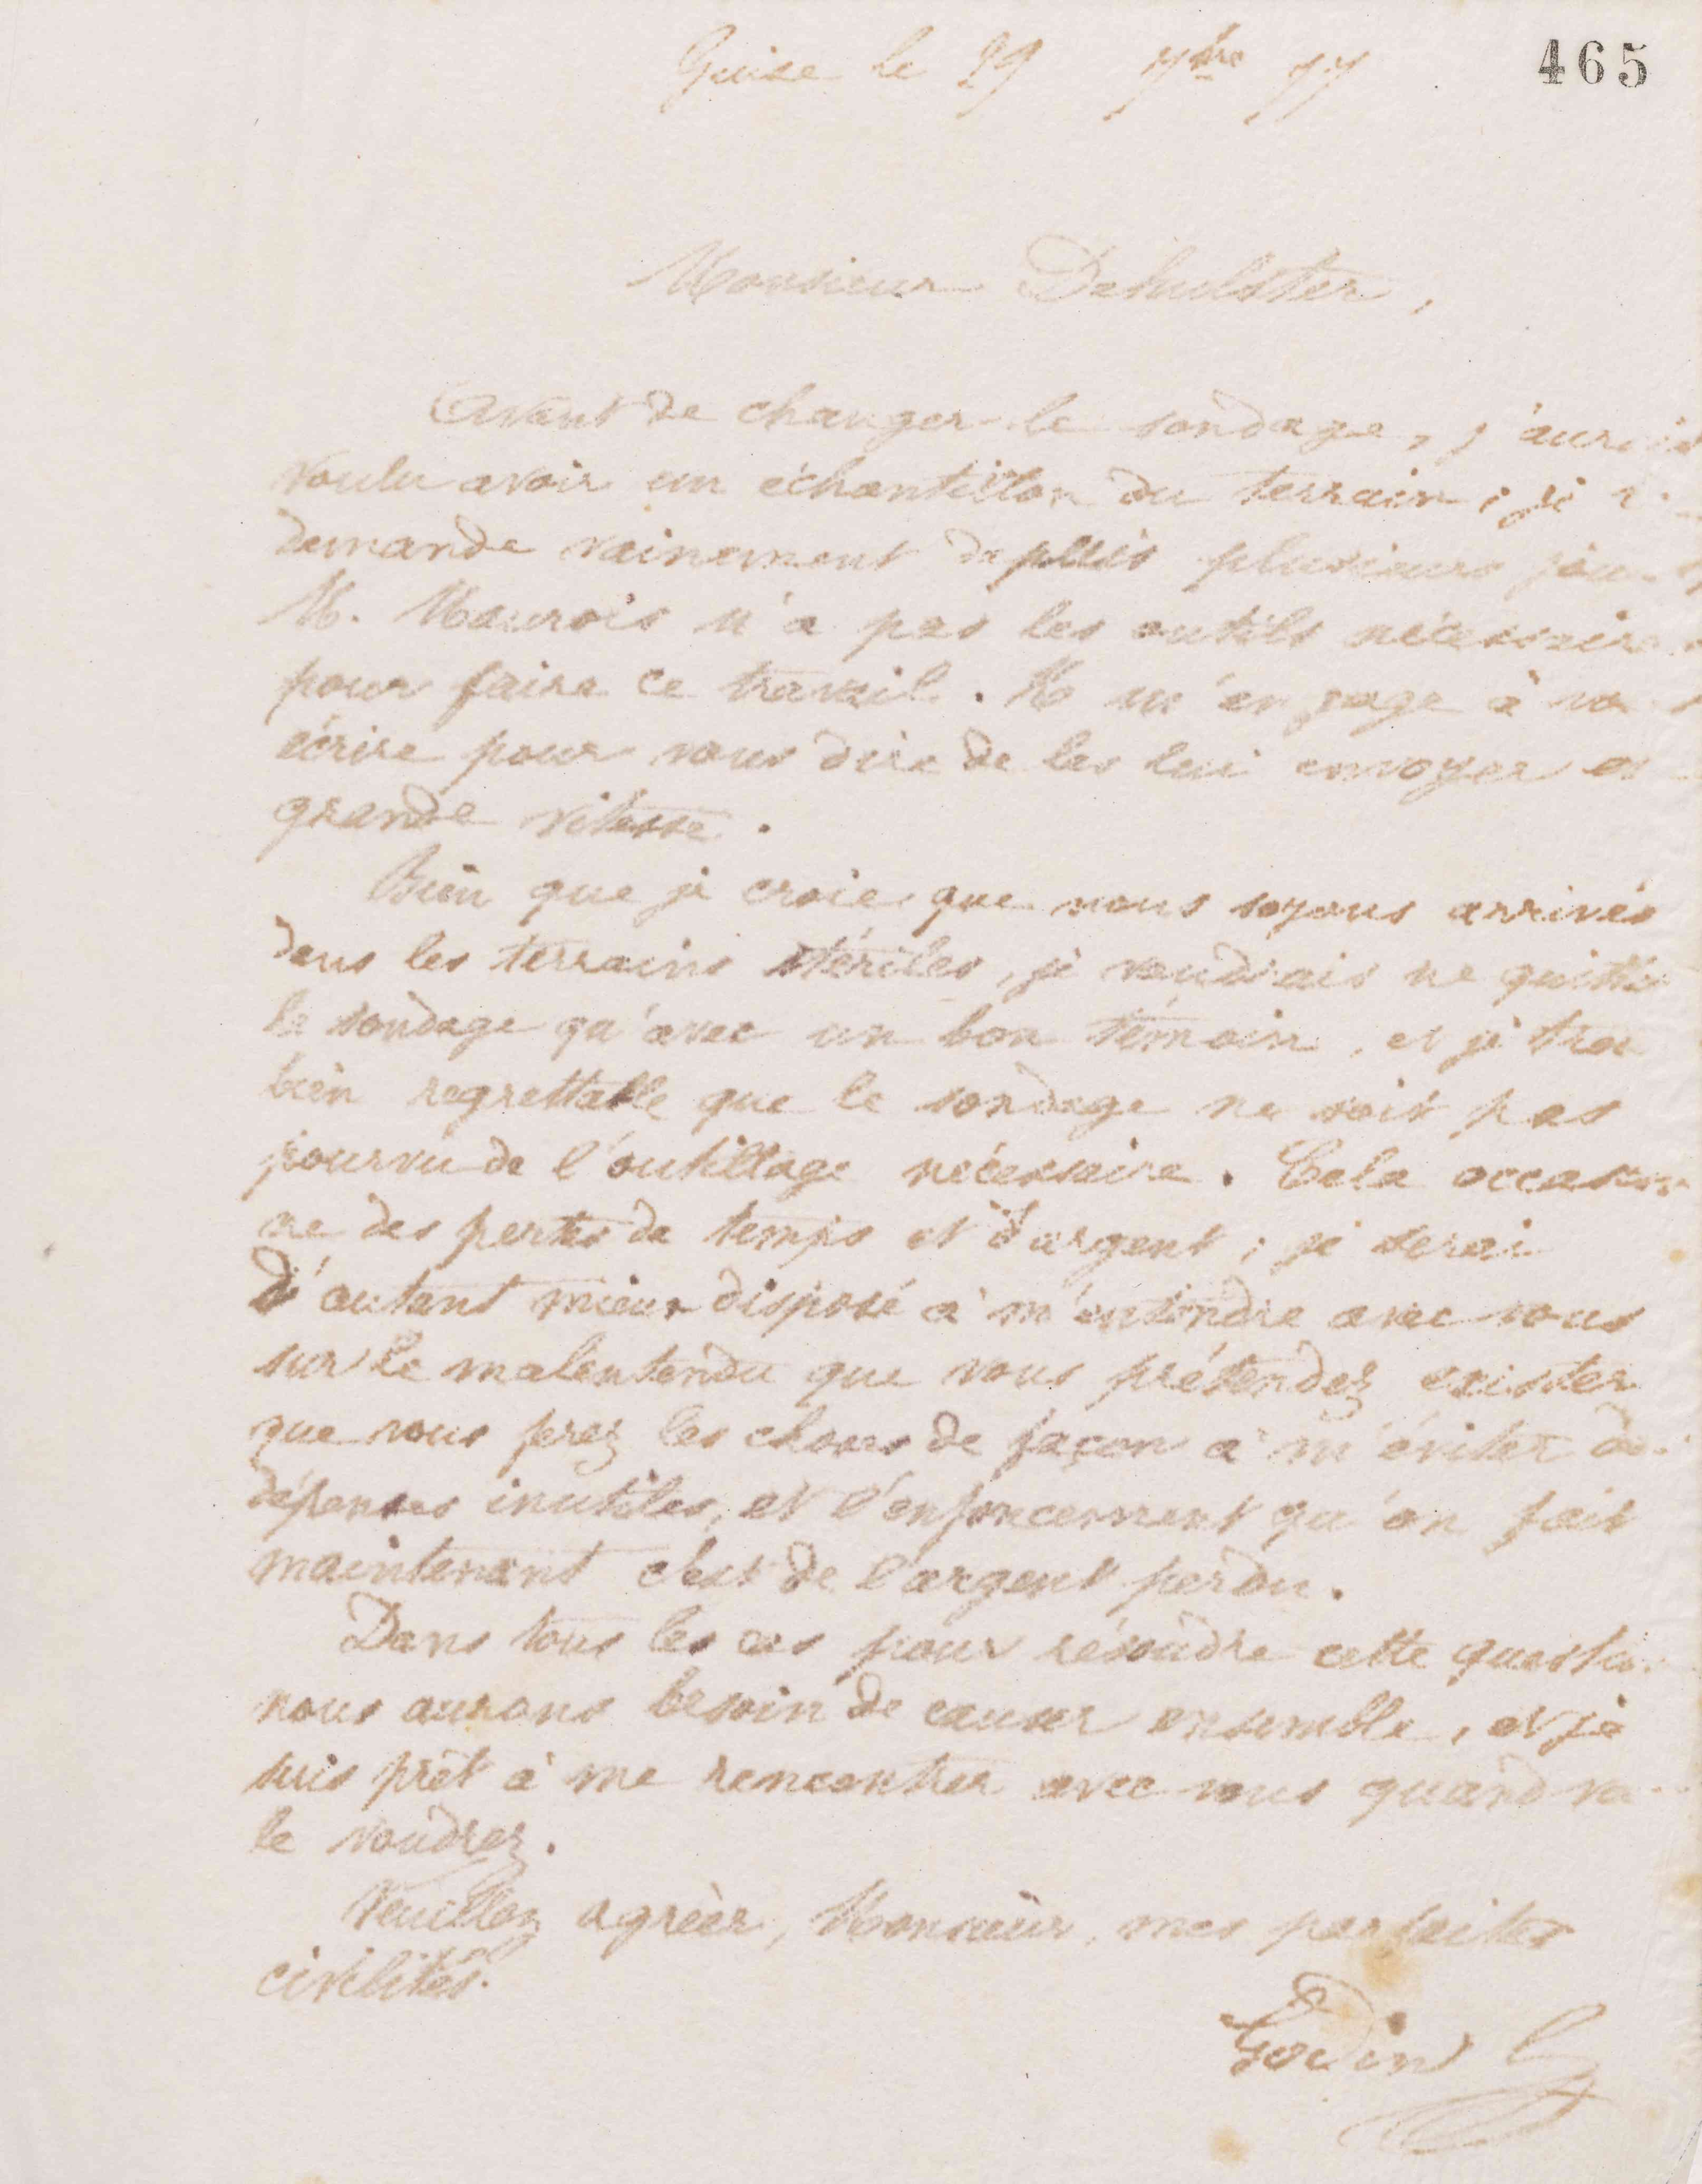 465
Guise le 29 7bre 77
Monsieur Dehulster,
Avant de changer le sondage, j'aurais
voulu avoir un échantillon du terrain ; je
demande vainement depuis plusieurs jou
M. Maurois n'a pas les outils nécessaire
pour faire ce travail. Il m'engage à vo
écrire pour vous dire de les lui envoyer en
grande vitesse.
Bien que je croie que nous soyons arrivés
dans les terrains stériles, je voudrais ne quitter
le sondage qu'avec un bon témoin, et je trou
bien regrettable que le sondage ne soit pas
pourvu de l'outillage nécessaire. Cela occasion
ne des pertes de temps et d'argent ; je serai
d'autant mieux disposé à m'entendre avec vous
sur le malentendu que vous prétendez exister
que vous ferez les choses de façon à m'éviter de
dépenses inutiles, et l'enfoncement qu'on fait
maintenant c'est de l'argent perdu.
Dans tous les cas pour résoudre cette question
nous aurons besoin de causer ensemble, et je
suis prêt à me rencontrer avec vous quand vo
le voudrez.
Veuillez agréer, Monsieur, mes parfaites
civilités.
Godin